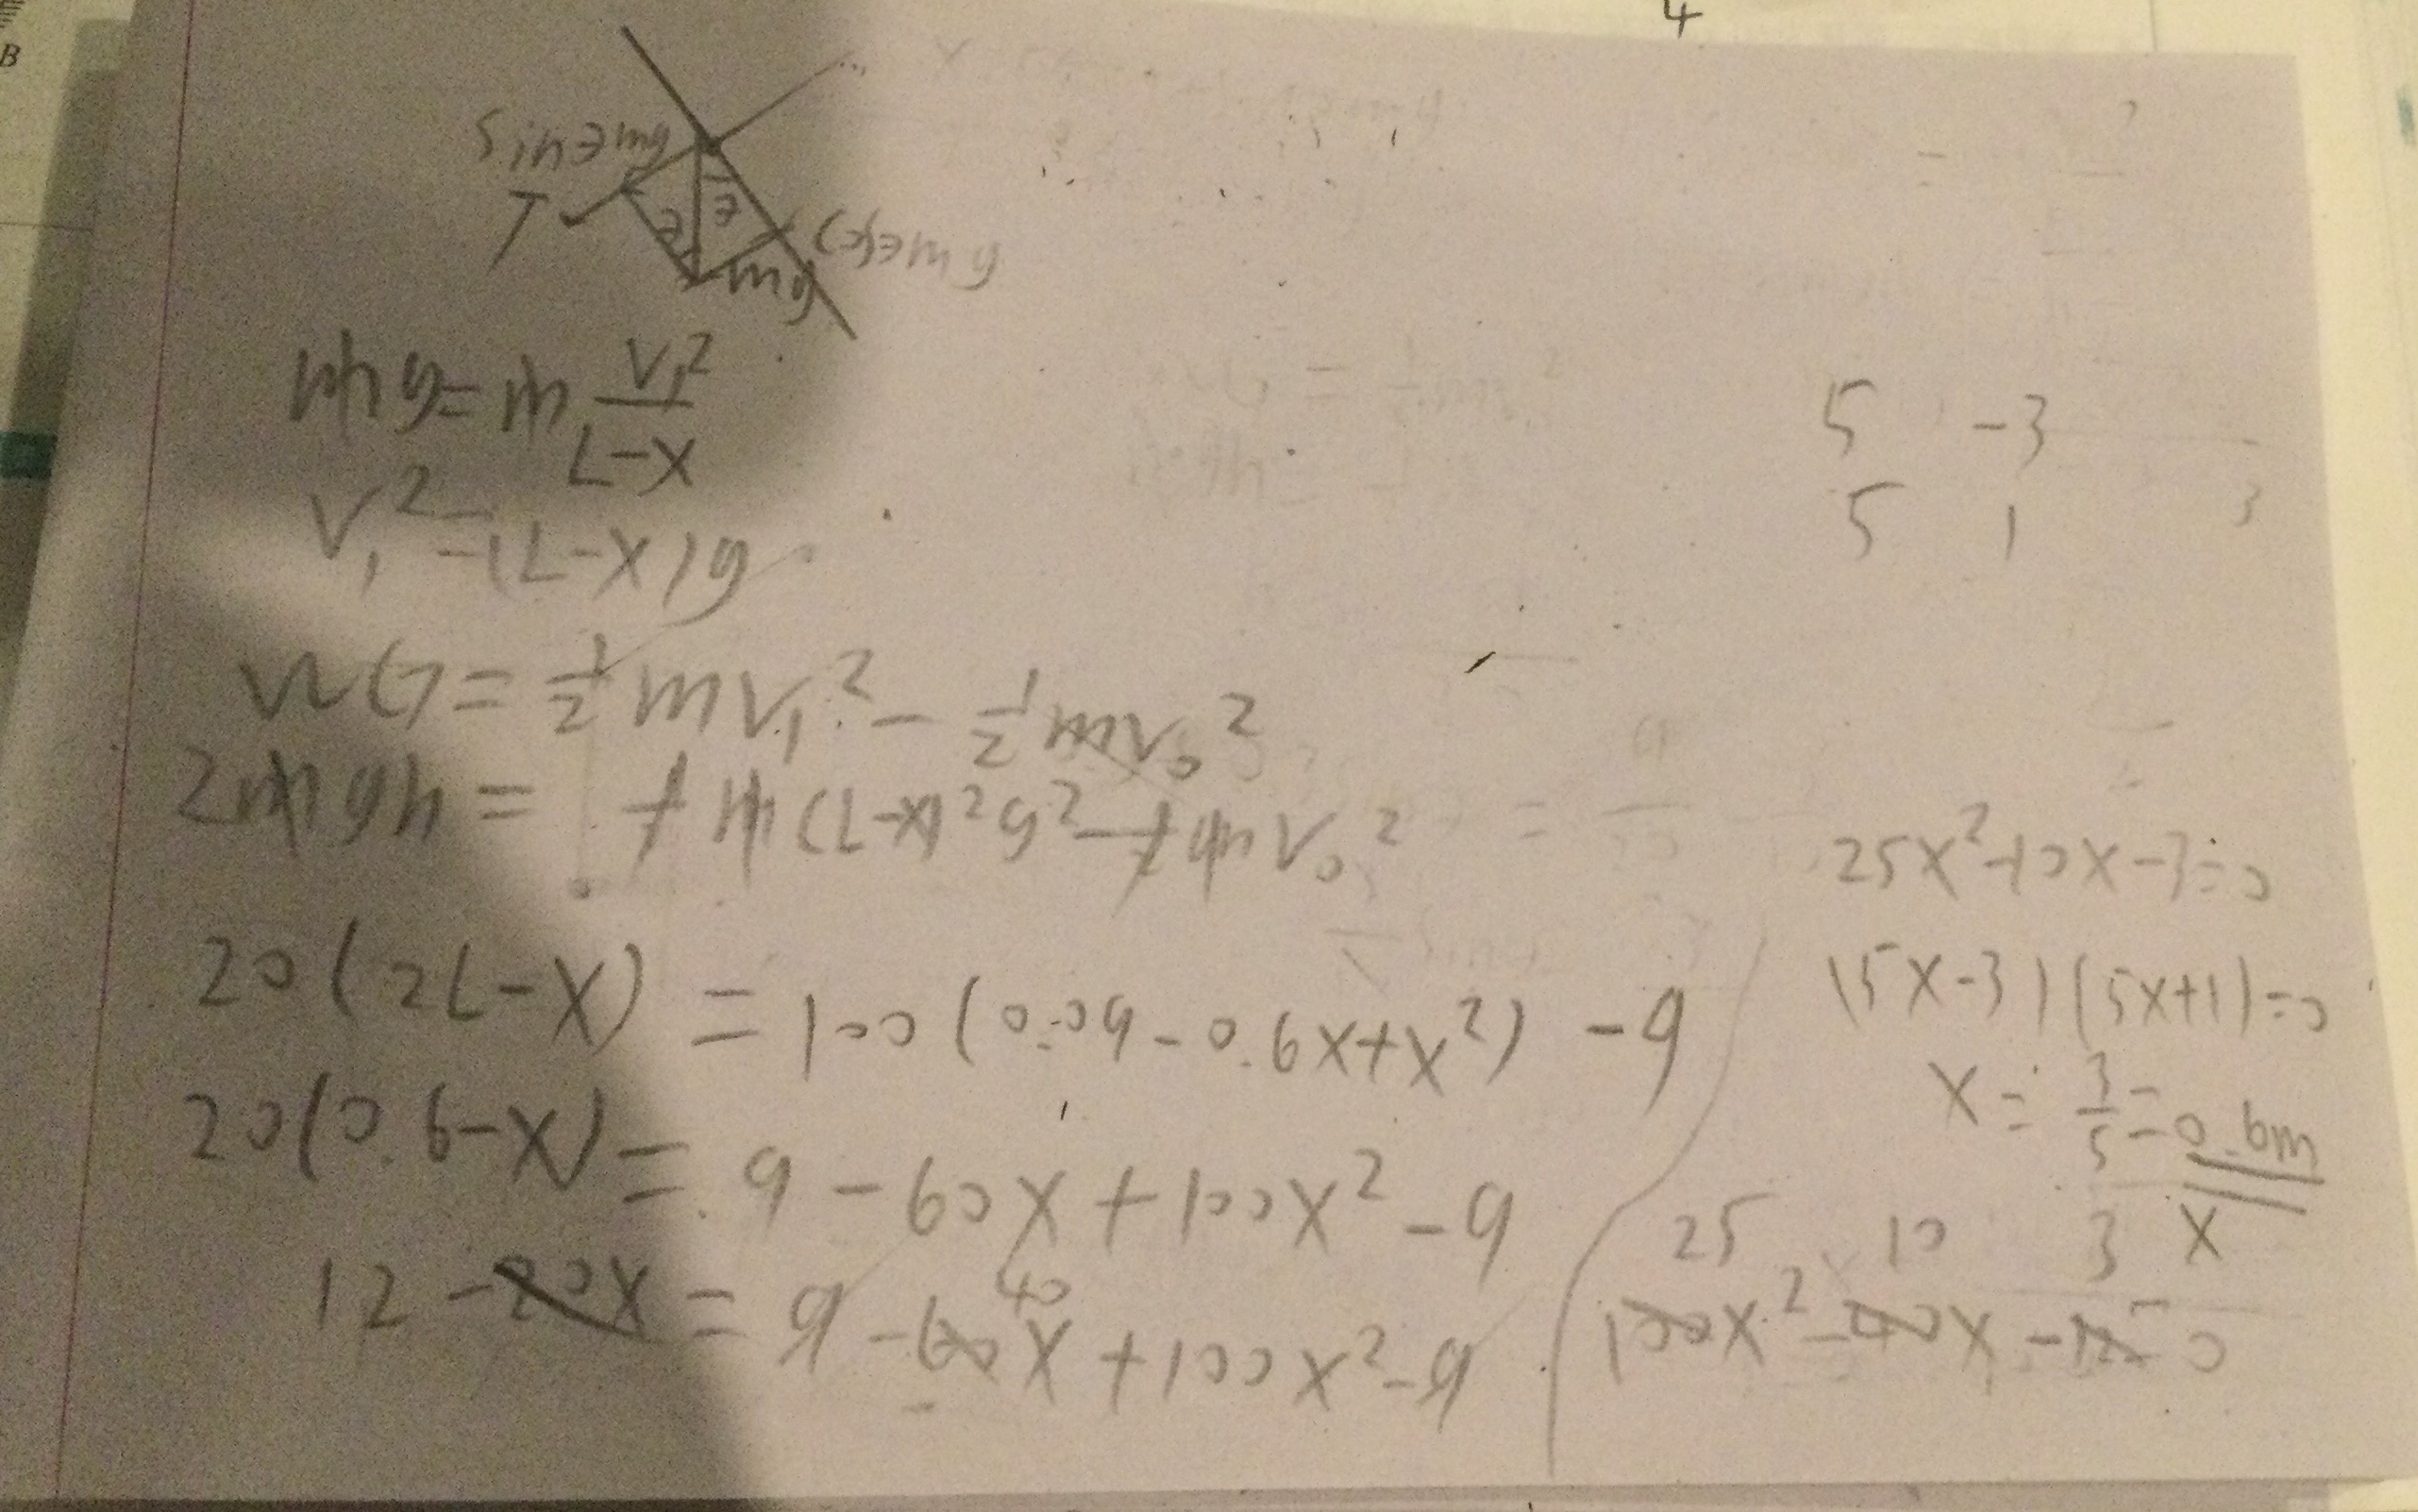 B
4
sinθmg
T
θ
θ
cosθmg
mg
mg = m V₁²/(L-X)
V₁² = (L-X)g
WG = 1/2 mV₁² - 1/2 mV₀²
2mgh = m(L-X)²g² - mV₀²
20(2L-X) = 100(0.09-0.6X+X²) -9
20(0.6-X) = 9-60X+100X²-9
12-20X = 9-60X+100X²-9
40
5 -3
5 1
3
25X²-10X-3=0
(5X-3)(5X+1)=0
X = 3/5 = 0.6m
25 10 3 X
100X²-40X-12=0